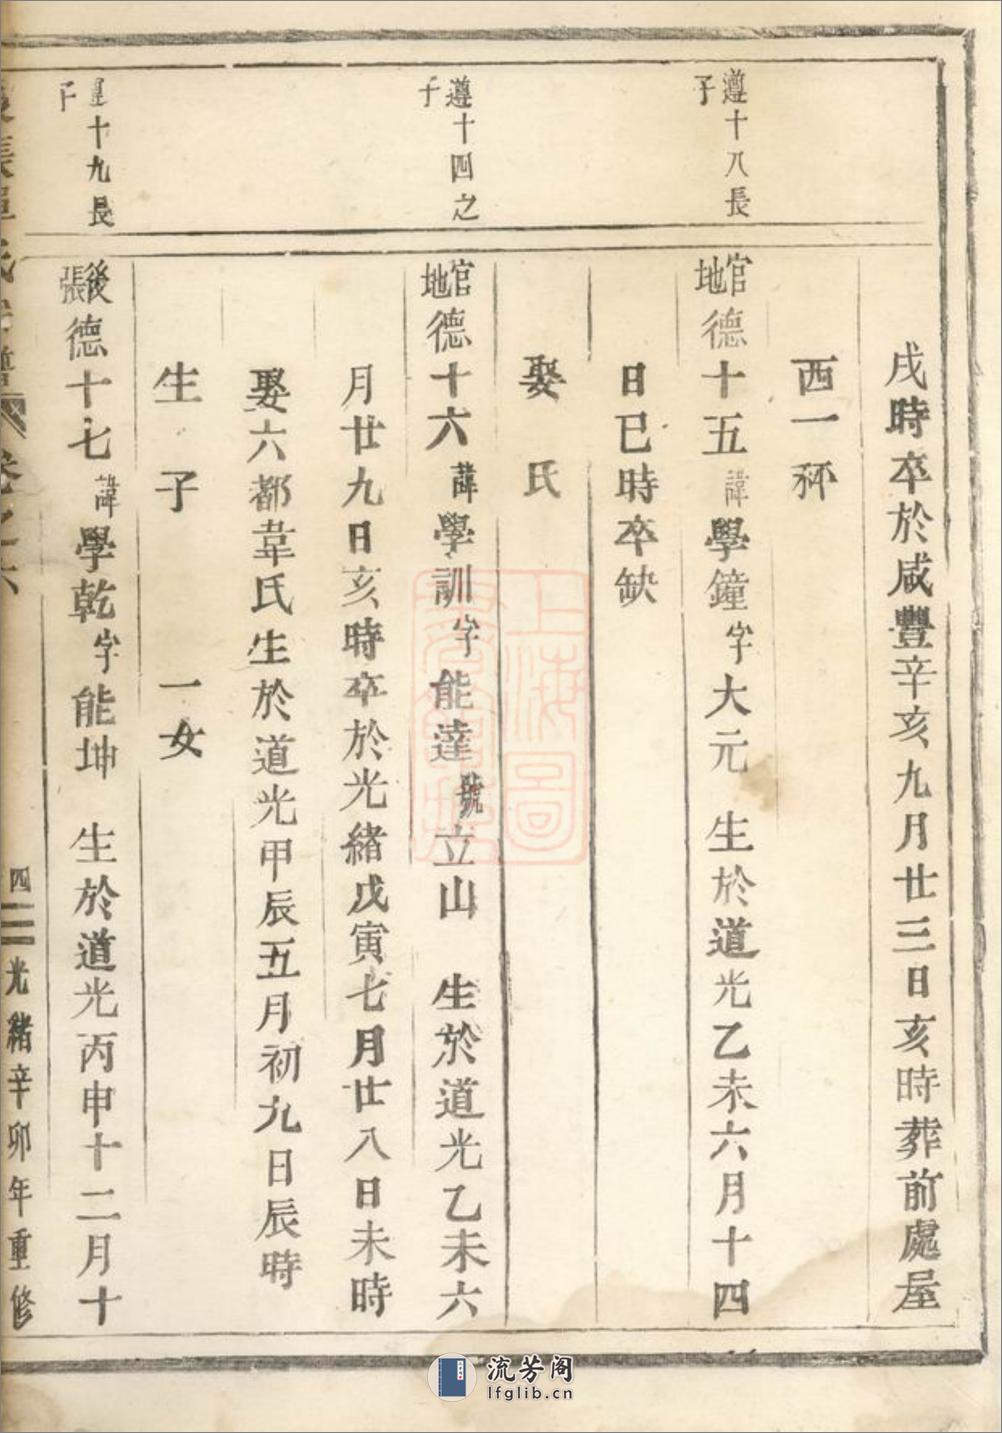 戌時卒於咸豐辛亥九月廿三日亥時葬前處屋
西一秠
遵十八長子
官地德十五諱學鐘字大元 生於道光乙未六月十四
日巳時卒缺
娶 氏
遵十四之子
官地德十六諱學訓字能達號立山 生於道光乙未六
月廿九日亥時卒於光緒戊寅七月廿八日未時
娶六都韋氏生於道光甲辰五月初九日辰時
生子 一女
十九長子
後張德十七諱學乾字能坤 生於道光丙申十二月十
卷之六
四
光緒辛卯年重修
上海圖
流芳阁
lfglib.cn